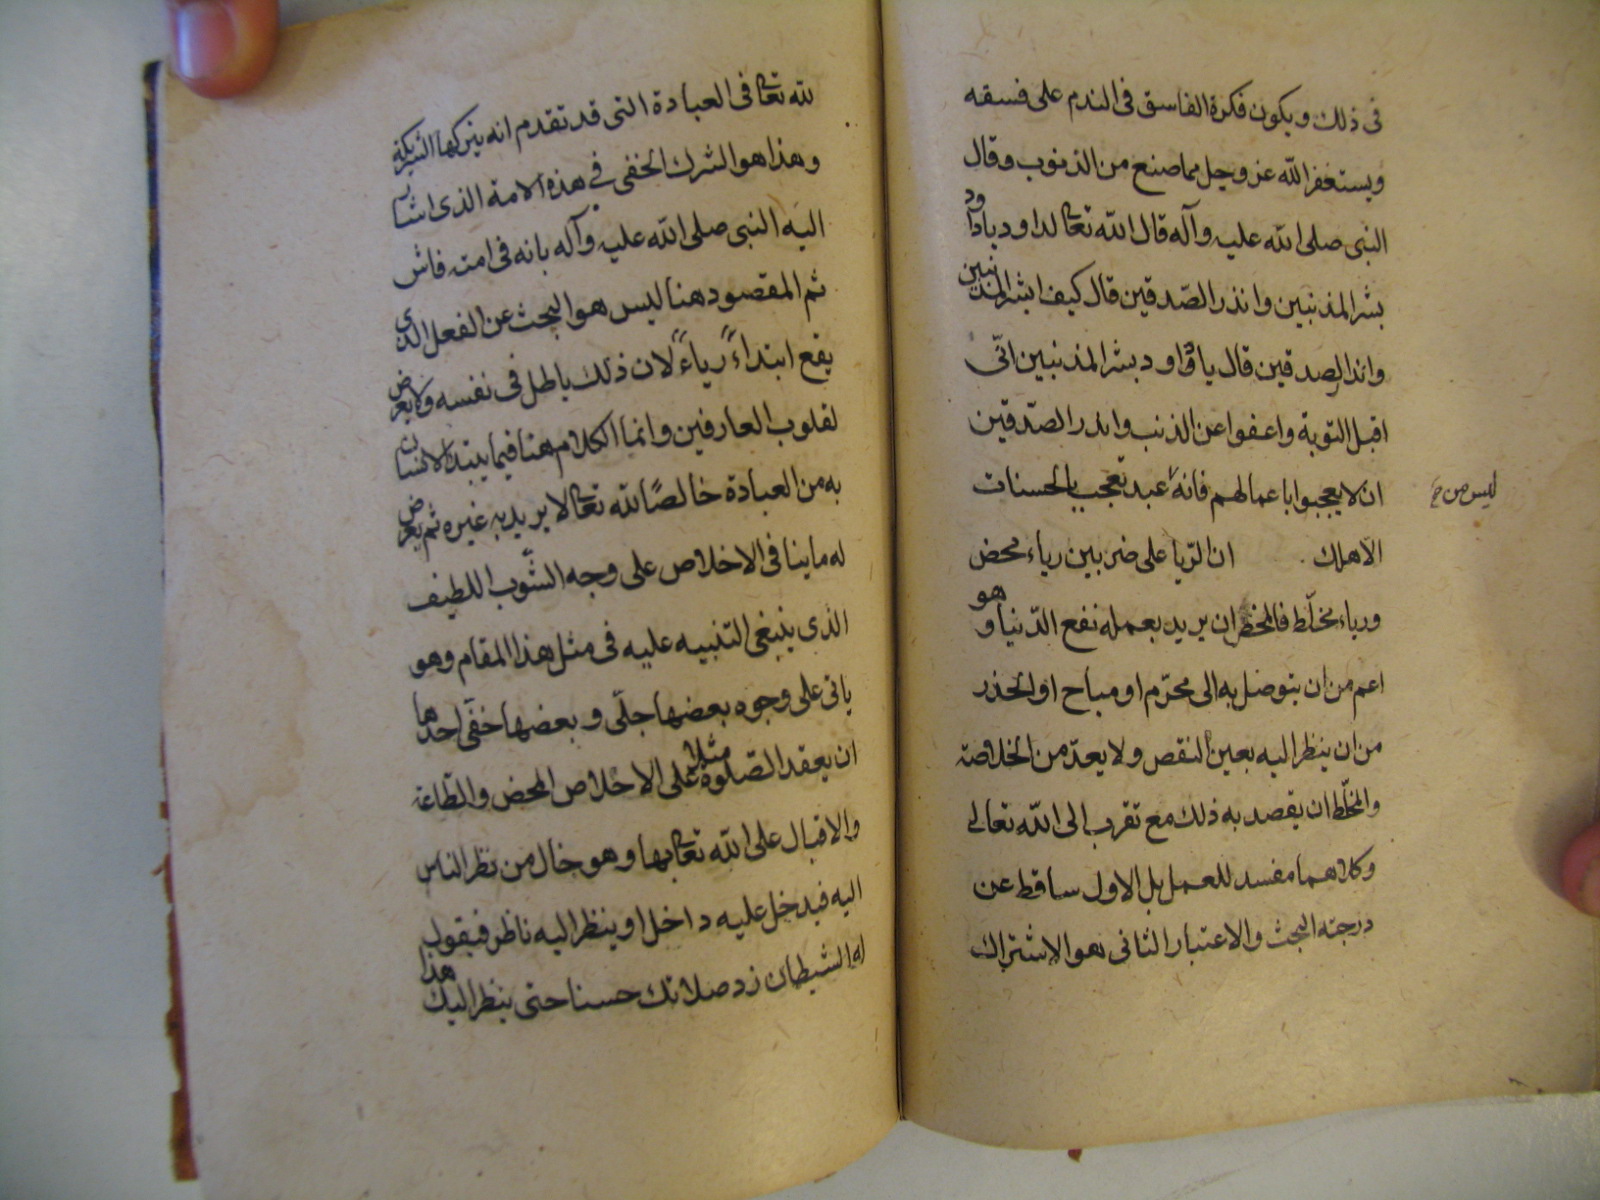 فى ذلك ويكون فكرة الفاسق فى الندم على فسقه
ويستغفر الله عز وجل مما صنع من الذنوب وقال
النبى صلى الله عليه وآله قال الله تعالى لداود ياداود
بشر المذنبين وانذر الصّديقين قال كيف ابشر المذنبين
وانذر الصديقين قال ياداود بشر المذنبين انّى
اقبل التوبة واعفوا عن الذنب وانذر الصّديقين
ان لا يعجبوا باعمالهم فانه عبد تعجب بالحسنات
ليس من
الا هلك . ان الرّيا على ضربين رياء محض
ورياء مخلّط فالمحض ان يريد بعمله نفع الدّنيا وهو
اعم من ان يتوصل به الى محرّم او مباح او الحذر
من ان ينظر اليه بعين النقص ولا يعدّ من الخاصة
والمخلّط ان يقصد به ذلك مع تقرب الى الله تعالى
وكلاهما مفسد للعمل بل الاول ساقط عن
درجته البحث والاعتبار الثانى هو الاشتراك
لله تعالى فى العبادة التى قد تقدم انه يتركها الشريكه
وهذا هو الشرك الخفى فى هذه الامة الذى اشار
اليه النبى صلى الله عليه وآله بانه فى امته فاش
ثم المقصود هنا ليس هو البحث عن الفعل الذى
يقع ابتداءً رياءً لان ذلك باطل فى نفسه ولا يعرض
لقلوب العارفين وانما الكلام هنا فيما يبتدا الانسان
به من العبادة خالصًا لله تعالى لا يريد به غيره ثم يعرض
له ما ينافى الاخلاص على وجه الشّوب اللطيف
الذى ينبغى التنبيه عليه فى مثل هذا المقام وهو
ياتى على وجوه بعضها جلّى وبعضها خفّى احدها
ان يعقد الصّلوة مثلا على الاخلاص المحض والطّاعة
والاقبال على الله تعالى بها وهو خال من نظر الناس
اليه فيدخل عليه داخل او ينظر اليه ناظر فيقول
له الشيطان زد صلاتك حسنا حتى ينظر اليك هذا